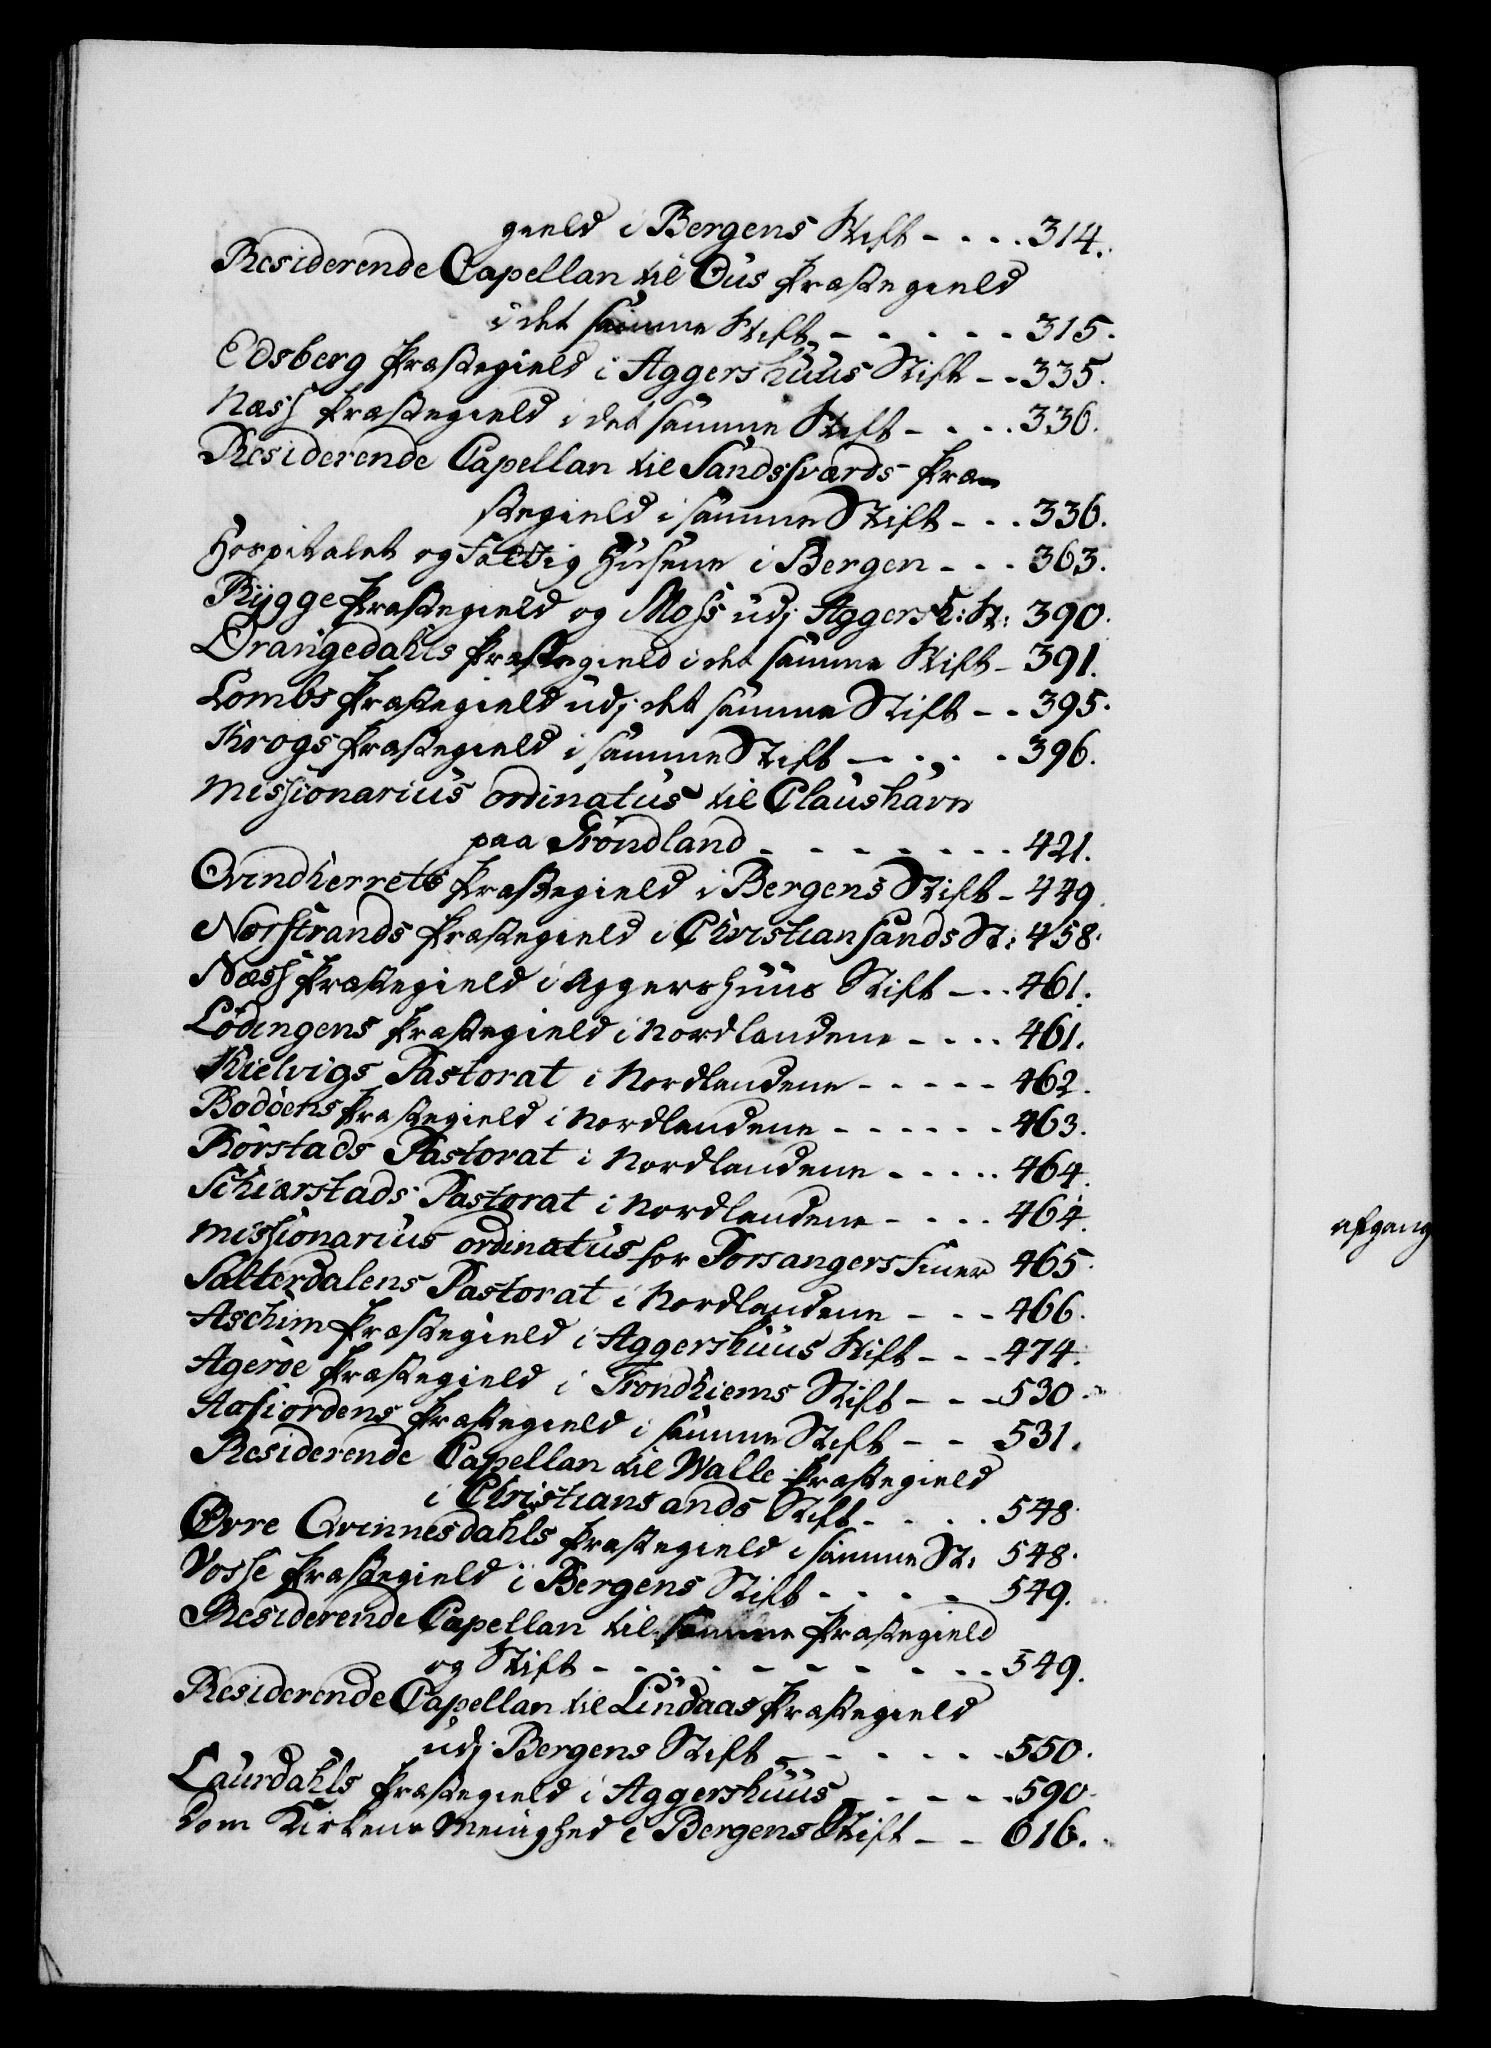 gield i Bergens Stift - - - - 314.
Residerende Capellan til Ous Præstegield
i det samme Stift - - - - - 315.
Edsberg Præstegield i Aggershuus Stift - - 335.
Næss Præstegield i det samme Stift - - - - 336.
Residerende Capellan til Sandssværds Præ-
stegield i samme Stift - - - 336.
Hospitalet og Fattig Husene i Bergen - - - 363.
Rygge Præstegield og Moss udj Aggersh: St: 390.
Drangedahls Præstegield i det samme Stift - 391.
Lombs Præstegield udj det samme Stift - - 395.
Krogs Præstegield i samme Stift - - - - 396.
Missionarius ordinatus til Claushavn
paa Grönland - - - - - - - 421.
Qvindherrets Præstegield i Bergens Stift - 449.
Norstrands Præstegield i Christiansands St: 458.
Næss Præstegield i Aggershuus Stift - - - 461.
Lödingens Præstegield i Nordlandene - - - - 461.
Kielvigs Pastorat i Nordlandene - - - - - 462.
Bodöens Præstegield i Nordlandene - - - - - - 463.
Rörstads Pastorat i Nordlandene - - - - - 464.
Schiærstads Pastorat i Nordlandene - - - - 464.
Missionarius ordinatus for Porsangers Finer 465.
Saltterdalens Pastorat i Nordlandene - - - 466.
Aschim Præstegield i Aggershuus Stift - - - 474.
Ageröe Præstegield i Trondhiems Stift - - - 530.
Aafiordens Præstegield i samme Stift - - 531.
Residerende Capellan til Walle Præstegield
i Christiansands Stift - - - - 548.
Øvre Qvinnesdahls Præstegield i samme St: 548.
Vosse Præstegield i Bergens Stift - - - - 549.
Residerende Capellan til samme Præstegield
og Stift - - - - - - - - - - 549.
Residerende Capellan til Lindaas Præstegield
udj Bergens Stift - - - - - - 550.
Laurdahls Præstegield i Aggershuus - - - - - 590.
Dom Kirkens Meenighed i Bergens Stift - - 616.
afgang